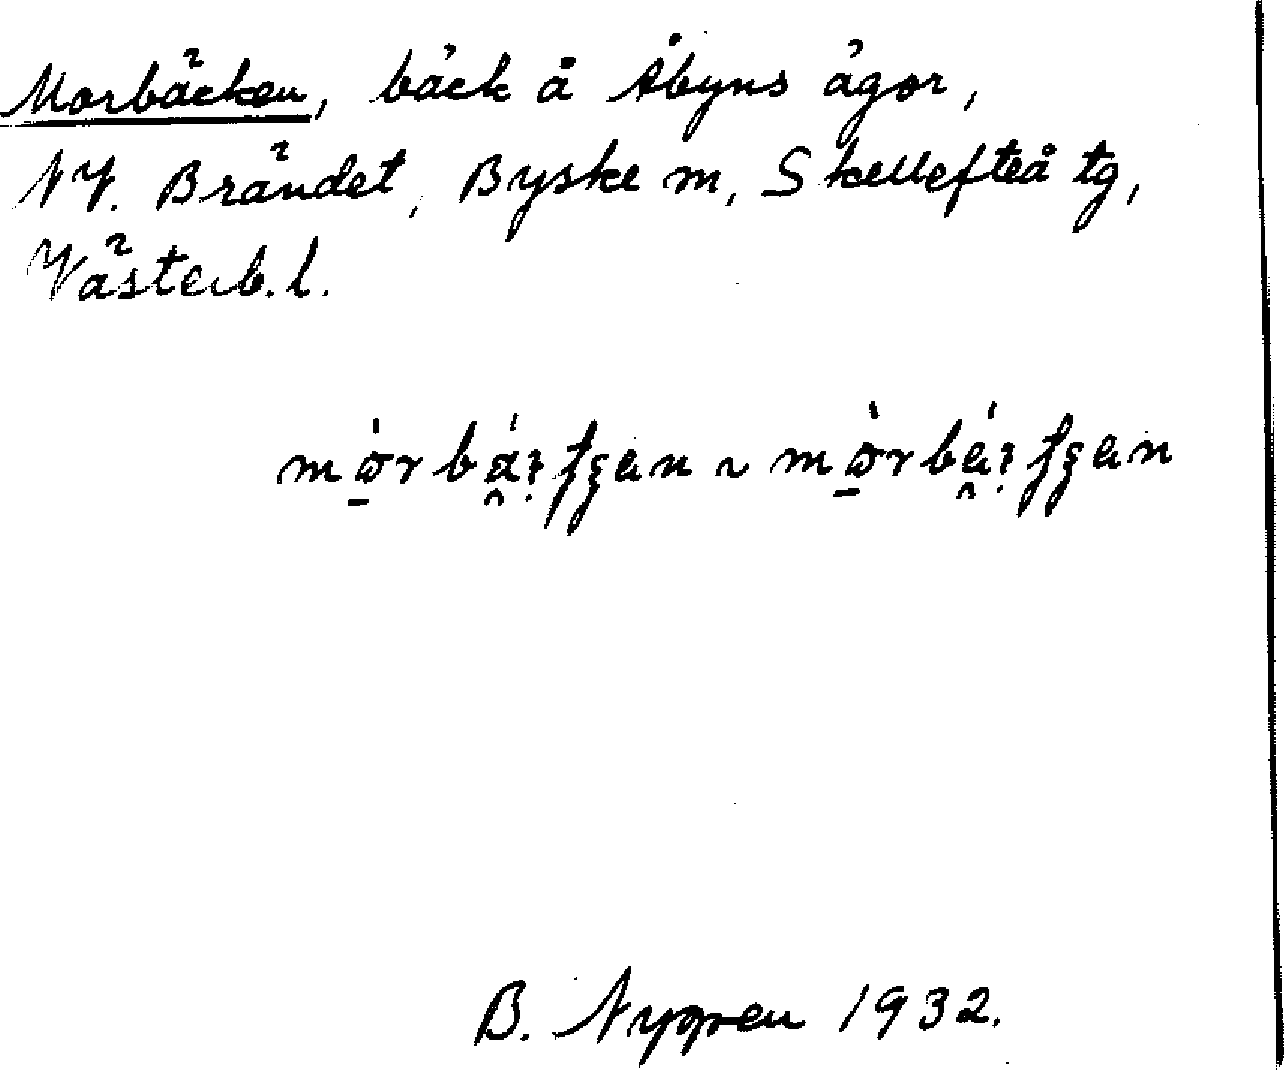 Morbäcken, bäck å Åbyns ägor,
NV. Brändet, Byske sn, Skellefteå tg,
Västerb. l.
B. Nygren 1932.